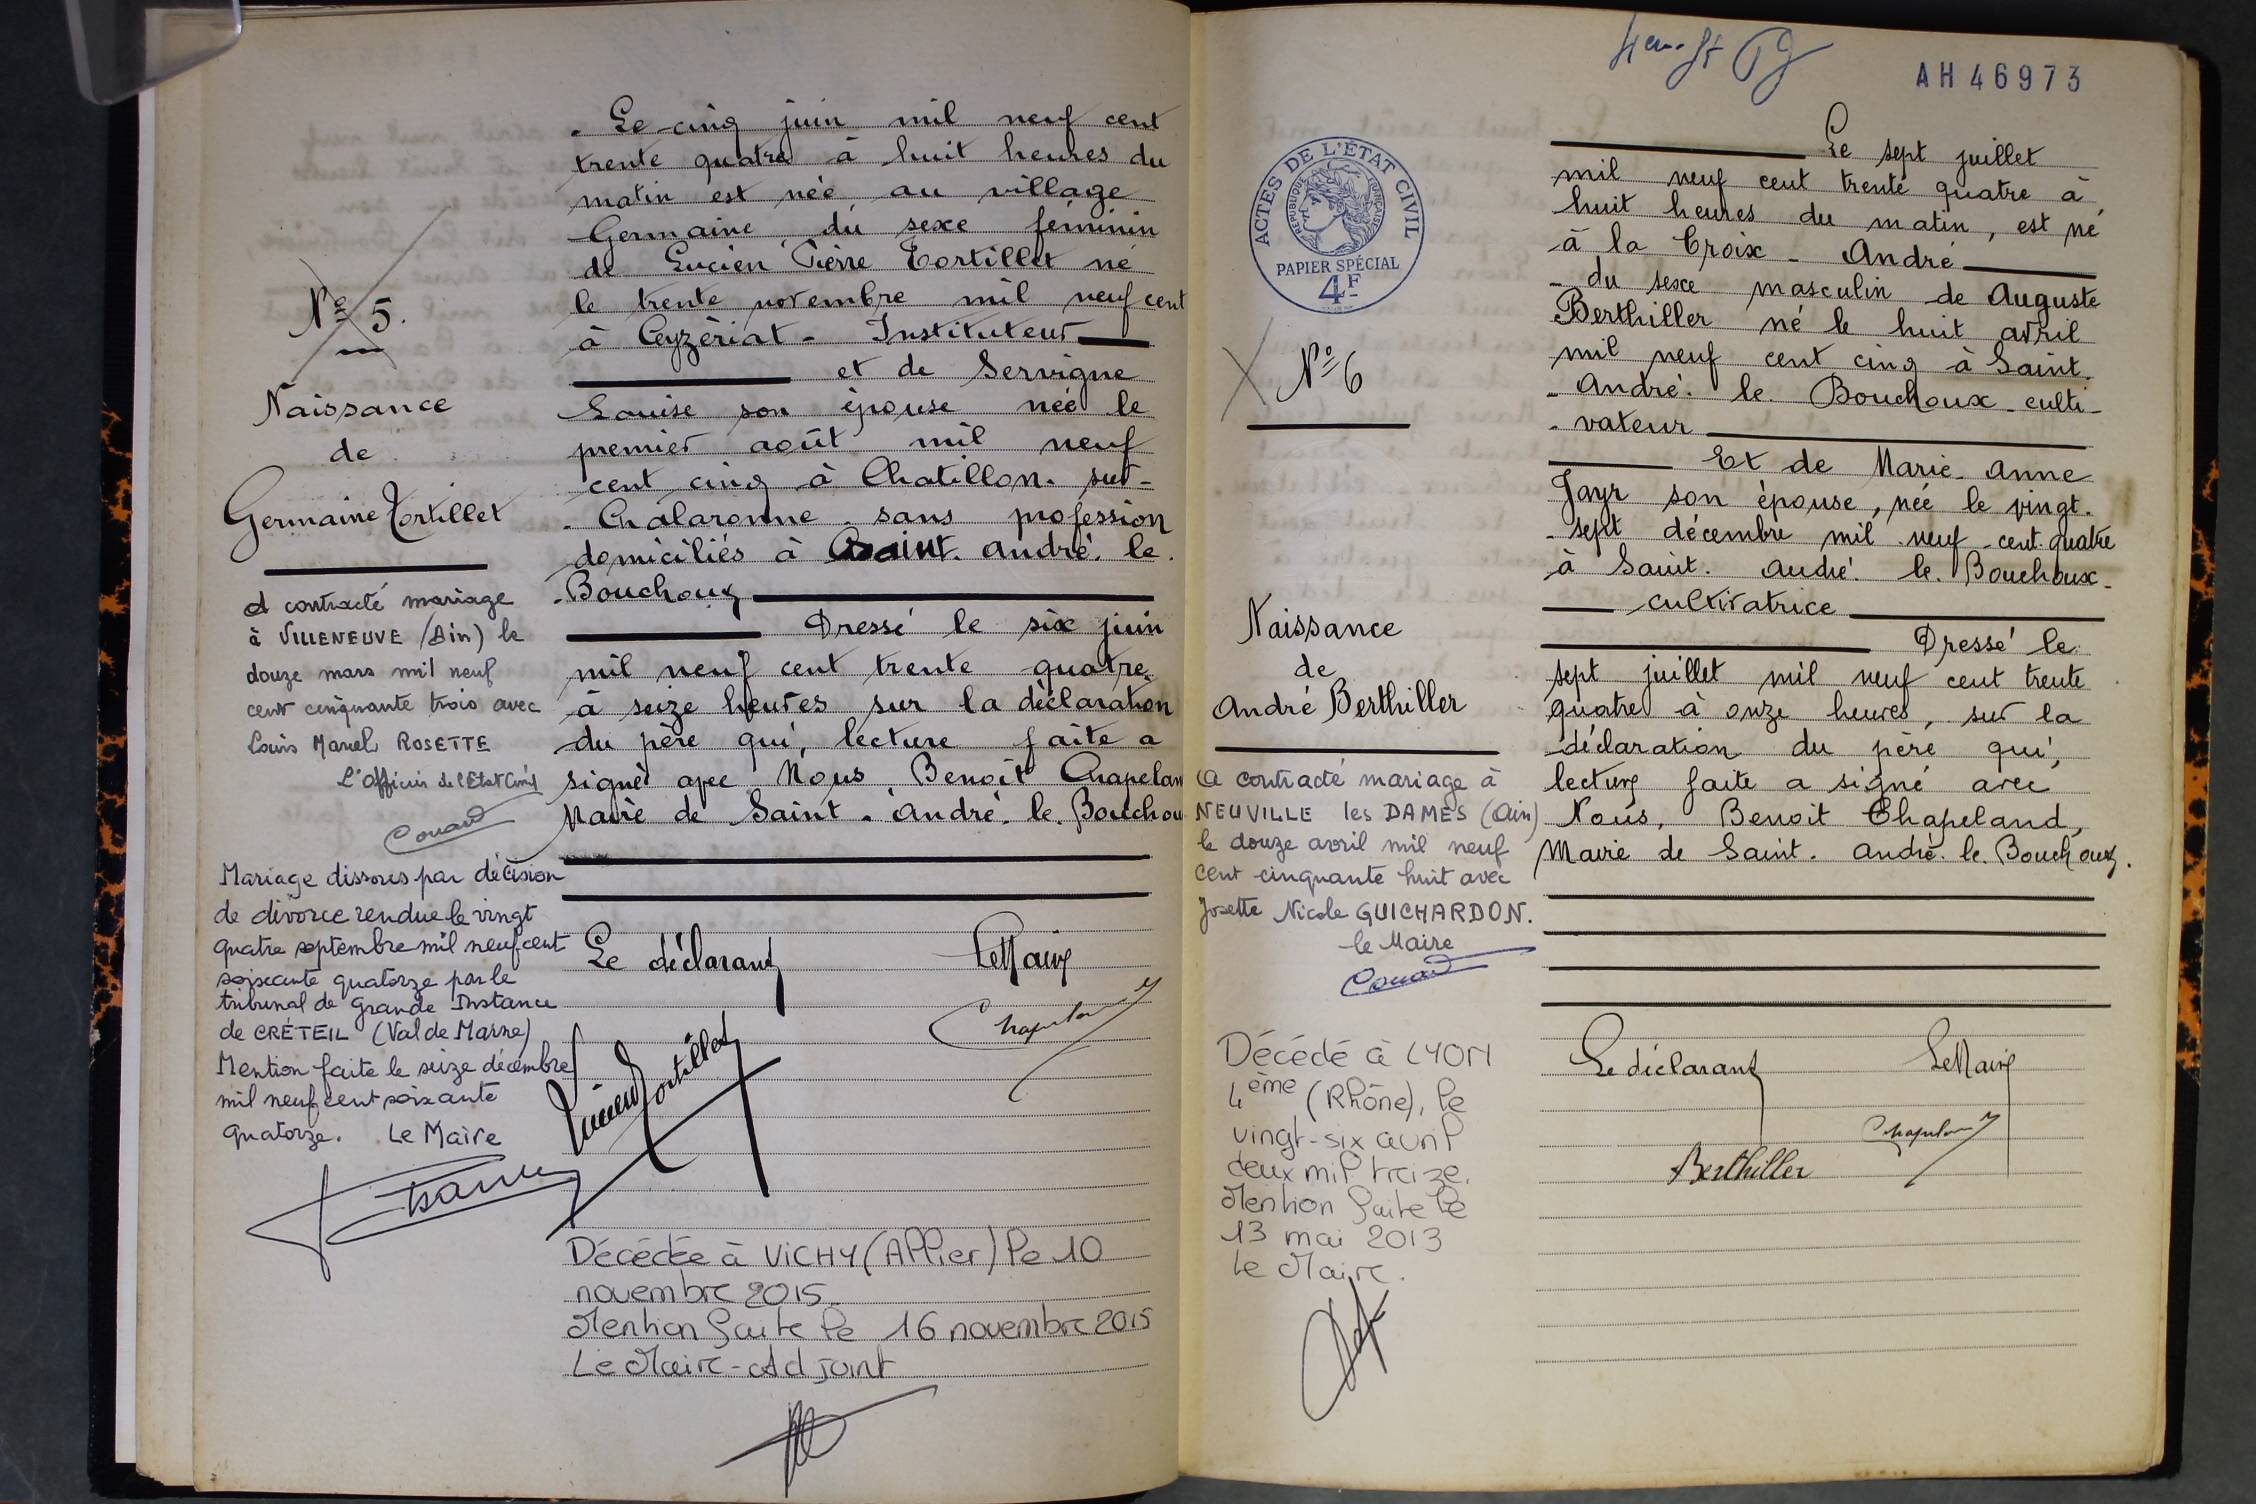 N° 5.
Naissance
de
Germaine Tortillet
A contracté mariage
à VILLENEUVE (Ain) le
douze mars mil neuf
cent cinquante trois avec
Louis Marcel ROSETTE
L'Officier de l'Etat Civil
Couard
Mariage dissous par décision
de divorce rendue le vingt
quatre septembre mil neuf cent
soixante quatorze par le
tribunal de Grande Instance
de CRÉTEIL (Val de Marne)
Mention faite le seize décembre
mil neuf cent soixante
quatorze. Le Maire
. Le cinq juin mil neuf cent
trente quatre à huit heures du
matin est née, au village
Germaine du sexe féminin
de Lucien Pierre Tortillet né
le trente novembre mil neuf cent
à Ceyzériat - Instituteur
et de Servigne
Louise son épouse née le
premier août mil neuf
cent cinq à Chatillon. sur-
. Chalaronne. sans profession
domiciliés à Saint. André. le.
. Bouchoux
Dressé le six juin
mil neuf cent trente quatre.
à seize heures sur la déclaration
du père qui, lecture faite a
signé avec Nous Benoît Chapelan
Maire de Saint. André. le. Bouchou
Le déclarant Le Maire
Lucien Tortillet Chapeland
Décédée à VICHY (Allier) le 10
novembre 2015
Mention faite le 16 novembre 2015
Le Maire-Adjoint
AH 46973
ACTES DE L'ÉTAT CIVIL
RÉPUBLIQUE FRANÇAISE
PAPIER SPÉCIAL
4F
N° 6
Naissance
de
André Berthiller
A contracté mariage à
NEUVILLE les DAMES (Ain)
le douze avril mil neuf
cent cinquante huit avec
Josette Nicole GUICHARDON.
le Maire
Couard
Décédé à LYON
4ème (Rhône), le
vingt-six avril
deux mil treize.
Mention faite le
13 mai 2013
le Maire.
Le sept juillet
mil neuf cent trente quatre à
huit heures du matin, est né
à la Croix - André
- du sexe masculin de Auguste
Berthiller né le huit avril
mil neuf cent cinq à Saint.
- André. le. Bouchoux - culti-
- vateur
Et de Marie - Anne
Jayr son épouse, née le vingt.
- sept décembre mil neuf - cent. quatre
à Saint. André. le. Bouchoux -
cultivatrice
Dressé le.
sept juillet mil neuf cent trente
quatre à onze heures, sur la
déclaration du père qui,
lecture faite a signé avec
Nous, Benoit Chapeland,
Maire de Saint. André. le. Bouchoux.
Le déclarant Le Maire
Chapeland
Berthiller